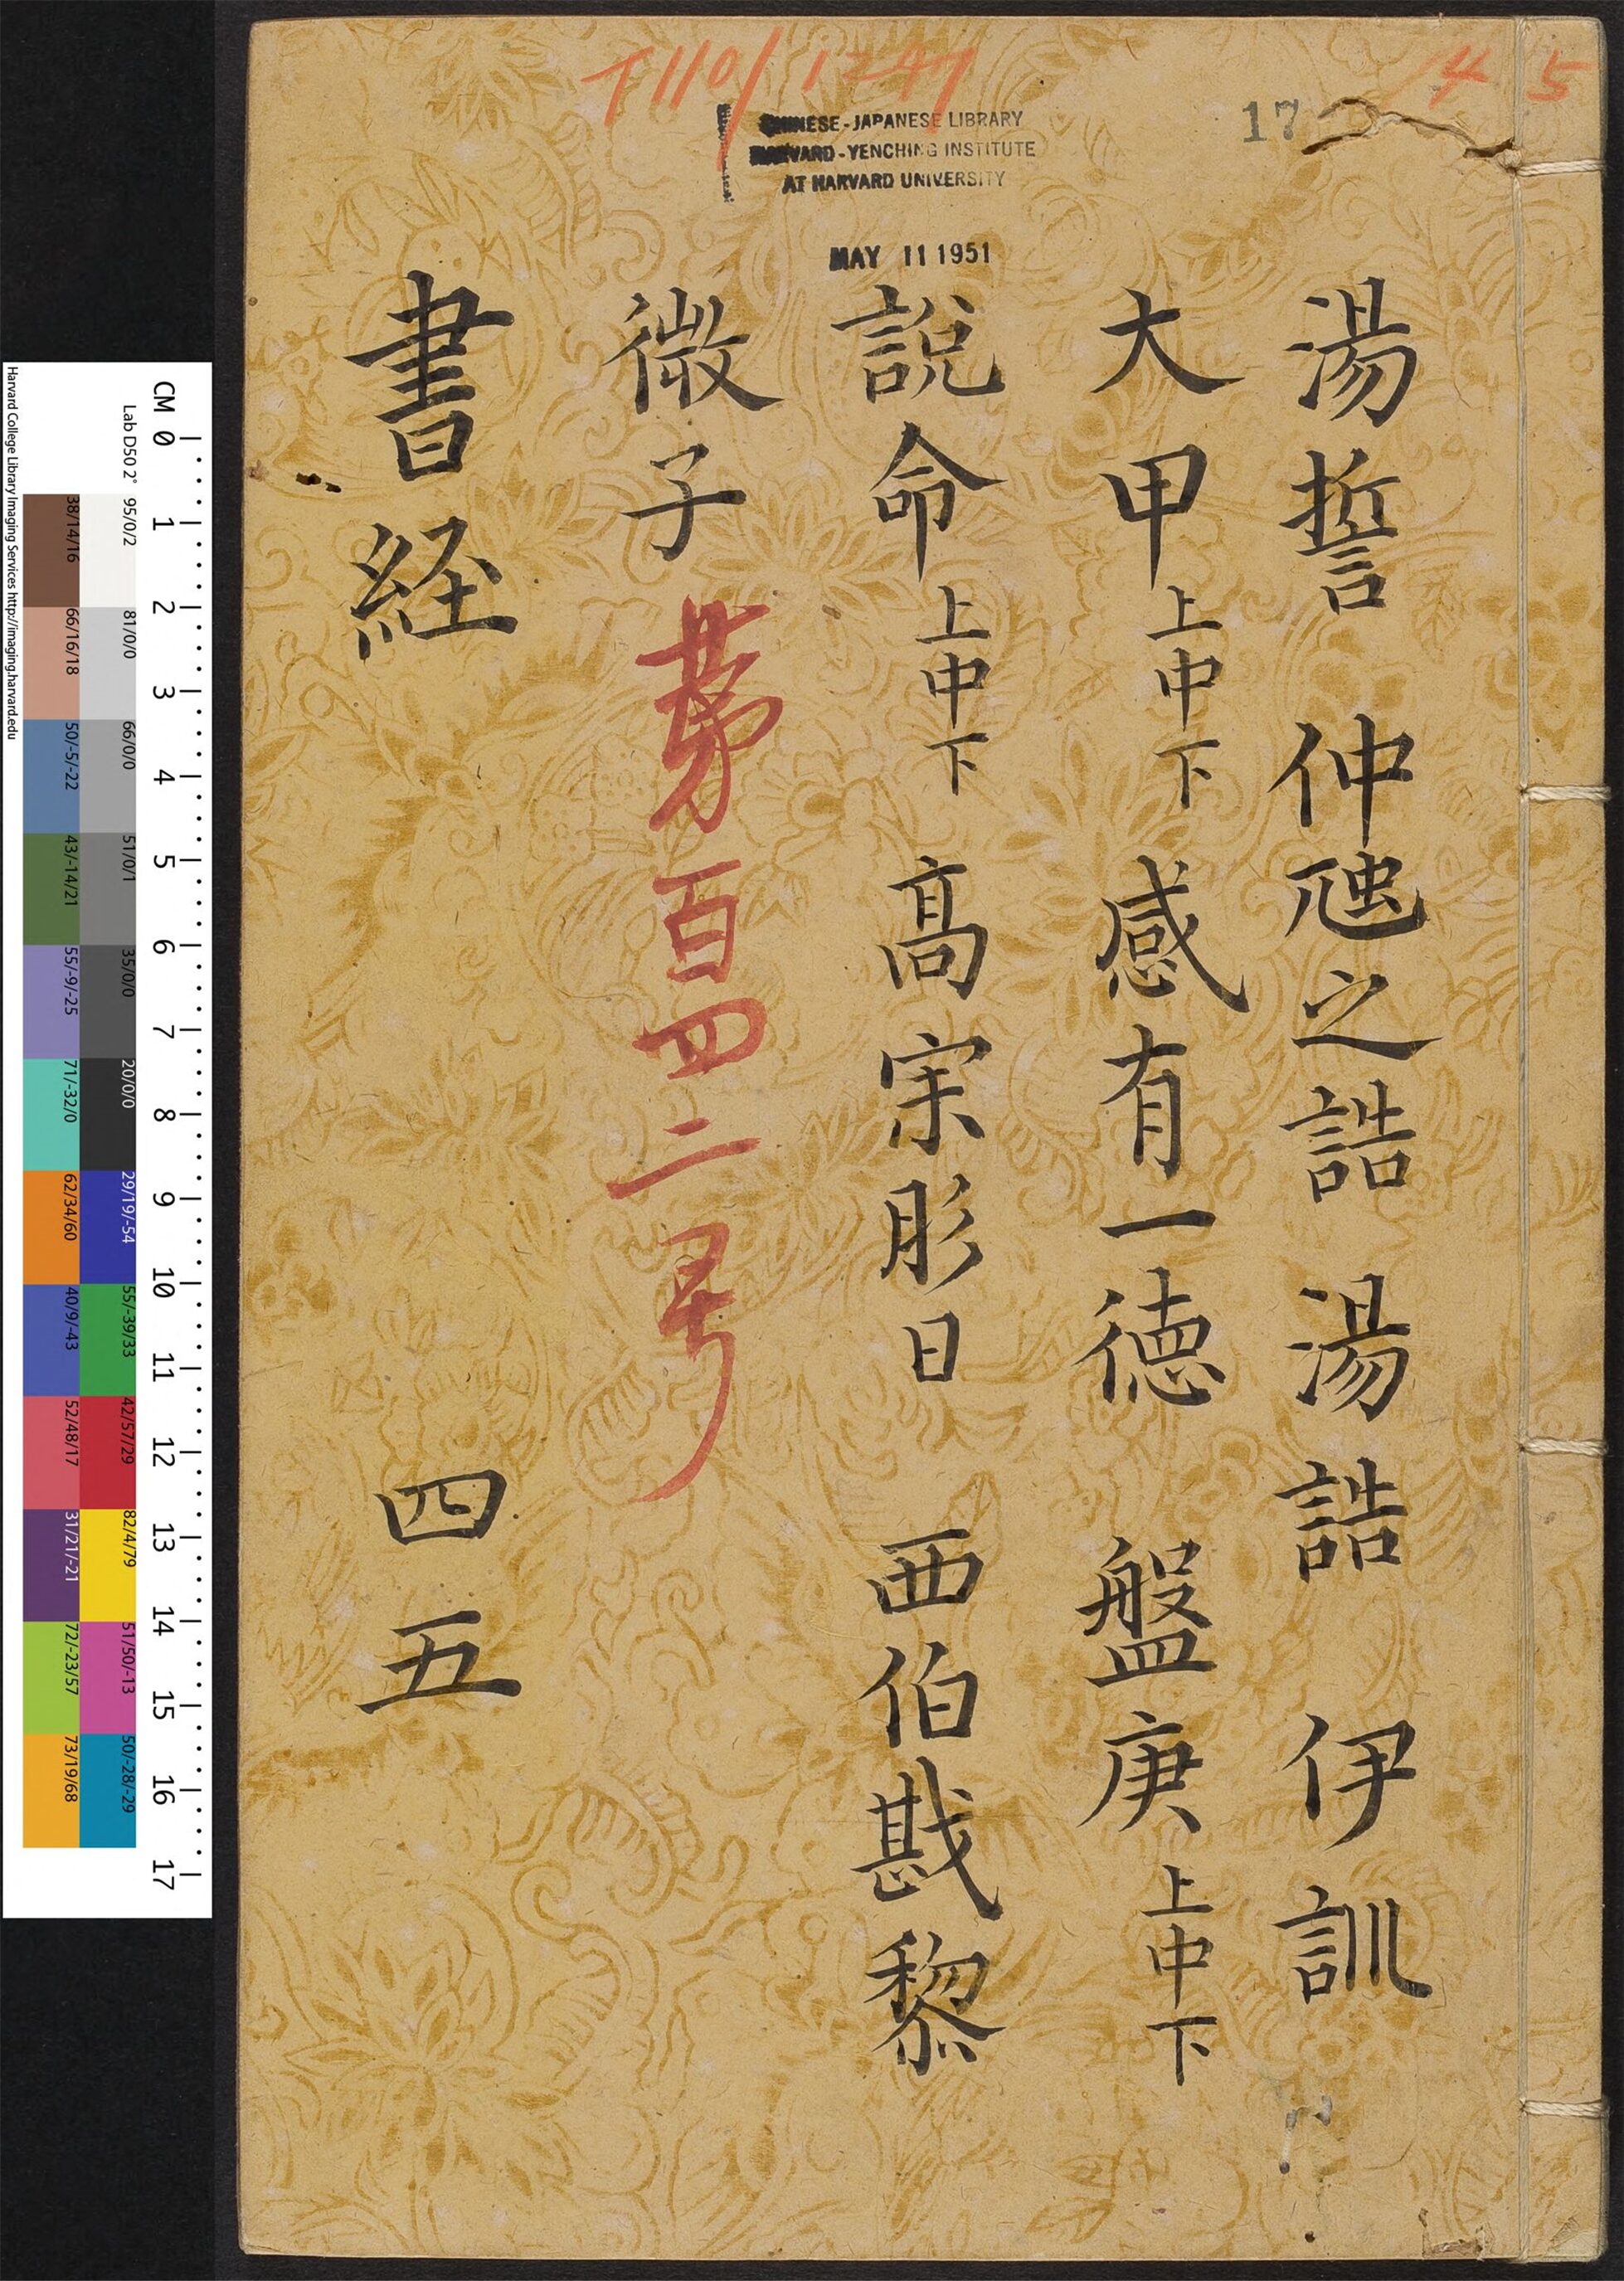 T110/1247
4 5
17
CHINESE-JAPANESE LIBRARY
HARVARD-YENCHING INSTITUTE
AT HARVARD UNIVERSITY
MAY 11 1951
湯誓 仲虺之誥 湯誥 伊訓
大甲上中下 感有一徳 盤庚上中下
說命上中下 髙宗肜日 西伯戡黎
微子 第百四二号
書経 四五
Harvard College Library Imaging Services http://imaging.harvard.edu
Lab D50 2° 95/0/2 81/0/0 66/0/0 51/0/1 35/0/0 20/0/0 29/19/-54 55/-39/33 42/57/29 82/4/79 51/50/-13 50/-28/-29
38/14/16 66/16/18 50/-5/-22 43/-14/21 55/-9/-25 71/-32/0 62/34/60 40/9/-43 52/48/17 31/21/-21 72/-23/57 73/19/68
CM 0 1 2 3 4 5 6 7 8 9 10 11 12 13 14 15 16 17